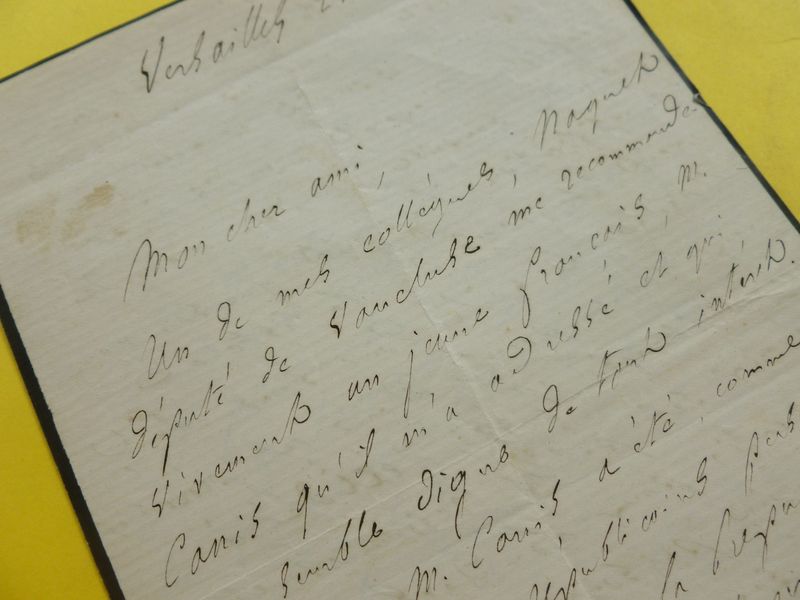 Versailles
Mon cher ami,
Un de mes collègues, Naquet
député de Vaucluse me recommande
vivement un jeune français, M.
Canis qu'il m'a adressé et qui
semble digne de tout intérêt.
M. Canis a été, comme
républicains
la Répu